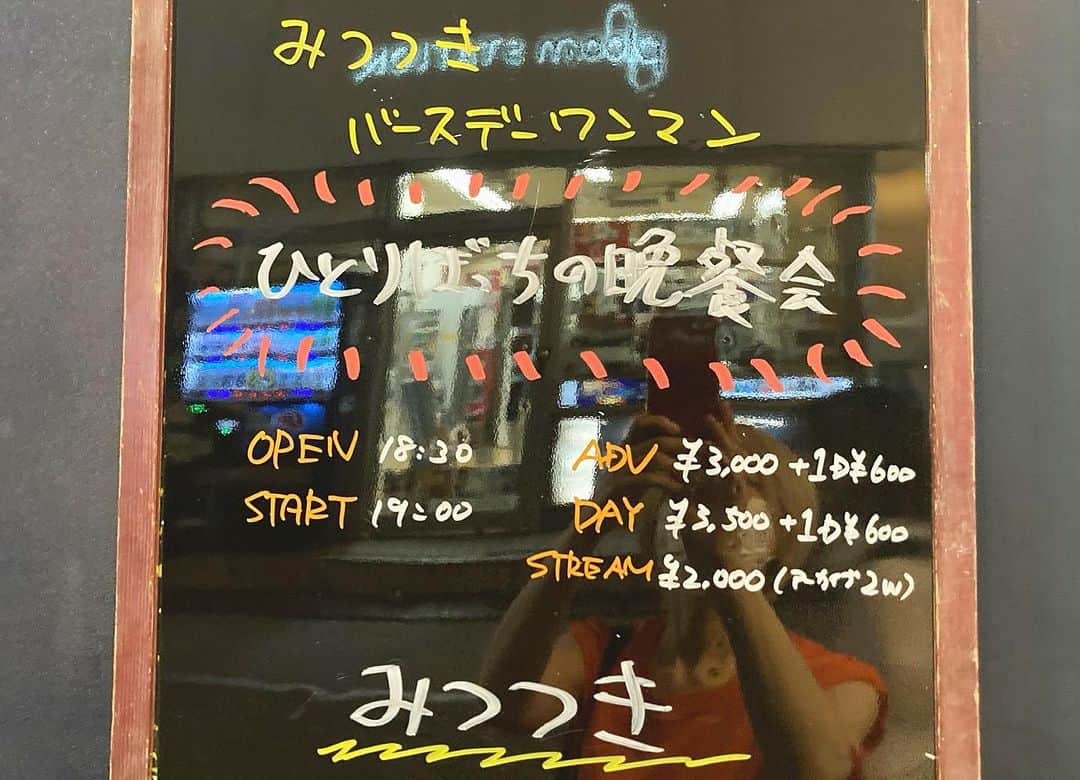 みつつき
バースデーワンマン
ひとりぼっちの晩餐会
OPEN 18:30
START 19:00
ADV ¥3,000+1D¥600
DAY ¥3,500+1D¥600
STREAM ¥2,000(アーカイブ2W)
みつつき